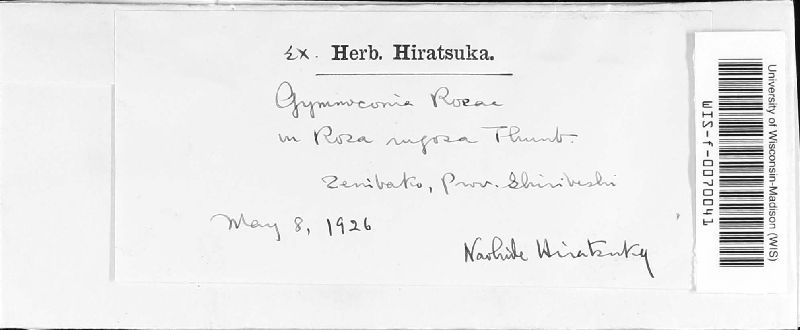 Ex. Herb. Hiratsuka.
Gymnoconia Rosae
in Rosa rugosa Thunb.
Zenibako, Prov. Shiribeshi
May 8, 1926
Naohide Hiratsuka
University of Wisconsin-Madison (WIS)
WIS-f-0070041